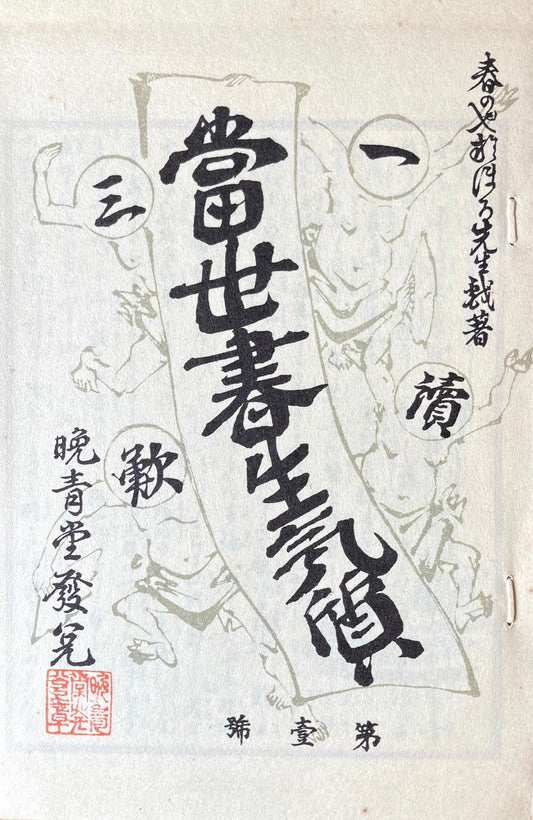 春のやおぼろ先生戯著
一讀三歎
當世書生氣質
晩青堂發兌
第壹號